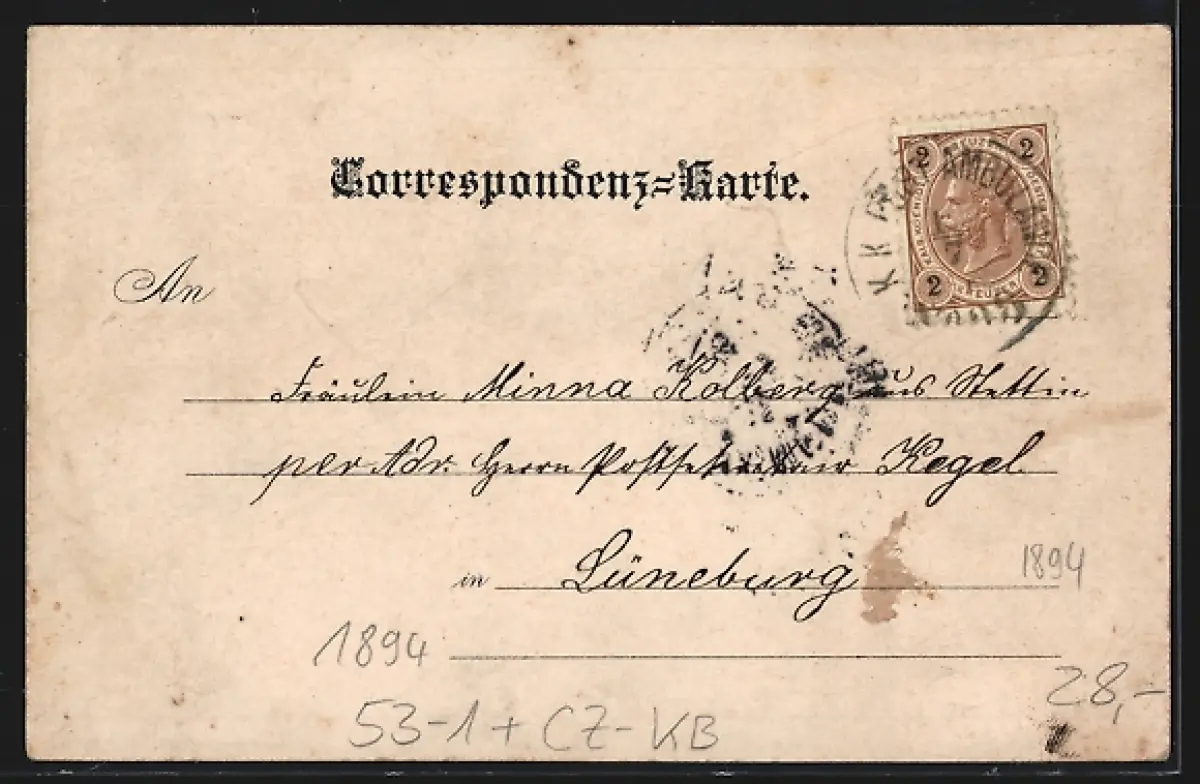 Correspondenz=Karte.
2 2
2 2
K K POSTAMBULANCE
An
Fräulein Minna Kolberg aus Stettin
per Adr. Herrn Postsekretair Kegel
in Lüneburg
1894
1894
28,-
53-1+CZ-KB